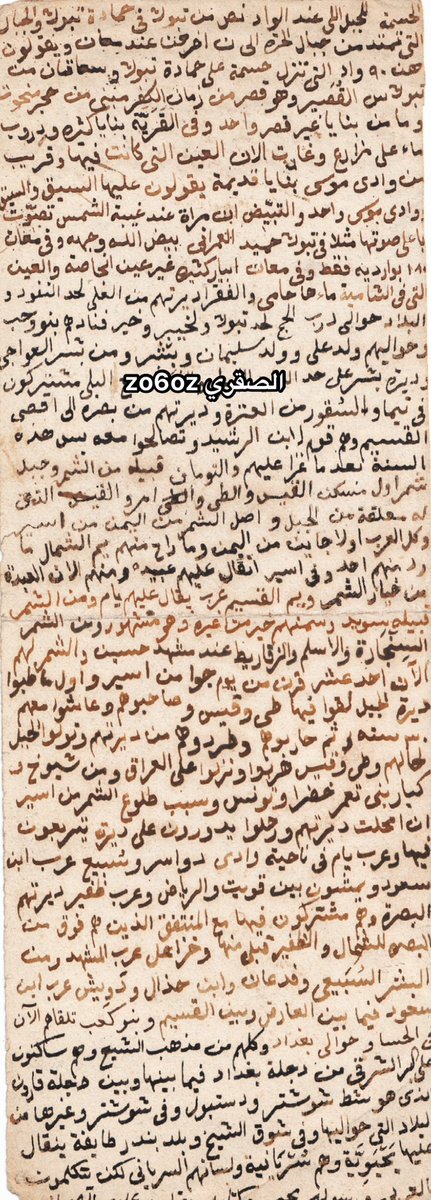 الحسن للجبل اللي عند الواد نص من تبوك في حمادة تبوك والجبال
التي تمتد من جبال الحرة الى ان اهرقن عند معان ويقولون
هن ٩٠ واد التي تنزل حسمة على حمادة تبوك وساعتان من
تبوك س القصير وهو قصر من زمان الكفر مبني من حجر منحوت
وما من بنايا غير قصر واحد وفي القريّة بنايا كثيره ودروب
ماء على مزارع وغارت الان العين التي كانت فيها وقريب
من وادي موسى بنايا قديمة يقولون عليها السيق
وادي موسى واحد والتبيّض ان مراة عند غيبة الشمس تصوّت
باعلى صوتها مثلا في تبوك حميد العمراني بيض الله وجهه وفي معان
١٨٠ بواردية فقط وفي معان ابيار كثيره غير عين الخاصة والعين
التي في الشامية ماءها حامي والفقرا ديرتهم من العلى لحد النفود و
البداد حوالي درب الحج لحد تبوك ولخيبر وخيبر فنادهم بنو وهب
وحواليهم ولد علي وولد سليمان وبنشر ومن نشر العواجي
وديرة بشر على حد
الصقري zo6oz
البلى مشتركون
في تيما والسقور من العنزة وديرتهم من بصره الى اقصى
القسيم وهم قوم لابن الرشيد وتصالحوا معه س هذه
السنة بعد ما غزا عليهم والتومان قبيله من الشمر وجبل
شمر اول مسكن القيس والطي والطي امرو القيس الذي
له معلقة من الجبل واصل الشمر من اليمن من اسيرهم
وكل العرب اولا جايت من اليمن وما راح منهم يم الشمال ما
رد منهم احد وفي اسير انقال عليهم عبيد ومنهم الان العبدة
من خيار الشمر ويم القسيم عرب يقال عليهم يام ومن الشمر
قبيله سويد رسمنهم خير من غيره وهو مشهور ومن الشمر
السنجارة والاسلم والزقاريط عند مشهد حسين والشمر لهم
الان احد عشر قرن من يوم جوا من اسير واول ما طبوا
ديرة لجبل لقوا فيها طي وقيس وصاحبوهم وعاشوا معهم
٣٠ سنه ثم حاربوهم وطردوهم من ديرتهم ونزلوا الجبل
كلهم وطي وقيس هربوا ونزلوا على العراق ومن شيوخ
كبار بني تعمر خضرا ويونس وسبب طلوع الشمر من اسير
ان امحلت ديرتهم ورحلوا يدورون على ديرة يتربعون
فيها وعرب يام في ناحية وادي دواسر وسُبيع عرب ابن
سعود ويمشون بين قويت والرياض وعرب ظفير ديرتهم
البصرة وهم مشتركون فيها مع المنتفق الذين هم فوق من
البصره للشمال والظفير قبل منها وخزاعل عرب المشهد ومن
البشر السُبيعي وفدعان وابن هذال ودويش عرب ابن
سعود فيما بين العارض وبين القسيم وبنو كعب تلقاهم الآن
في الحسا وحوالي بغداد وكلهم من مذهب الشيع وهم ساكنون
على البر الشرقي من دجلة بغداد فيما بينها وبين دجلة قارون
الذي هو شط شوشتر ودسبول وفي شوشتر وغيرها من
البلاد التي حواليها وفي شوق الشيخ وبلد بندر طايفة ينقال
عليها يَحيَويّة وهم سُريانية ولسانهم السرياني لكن يتكلمون